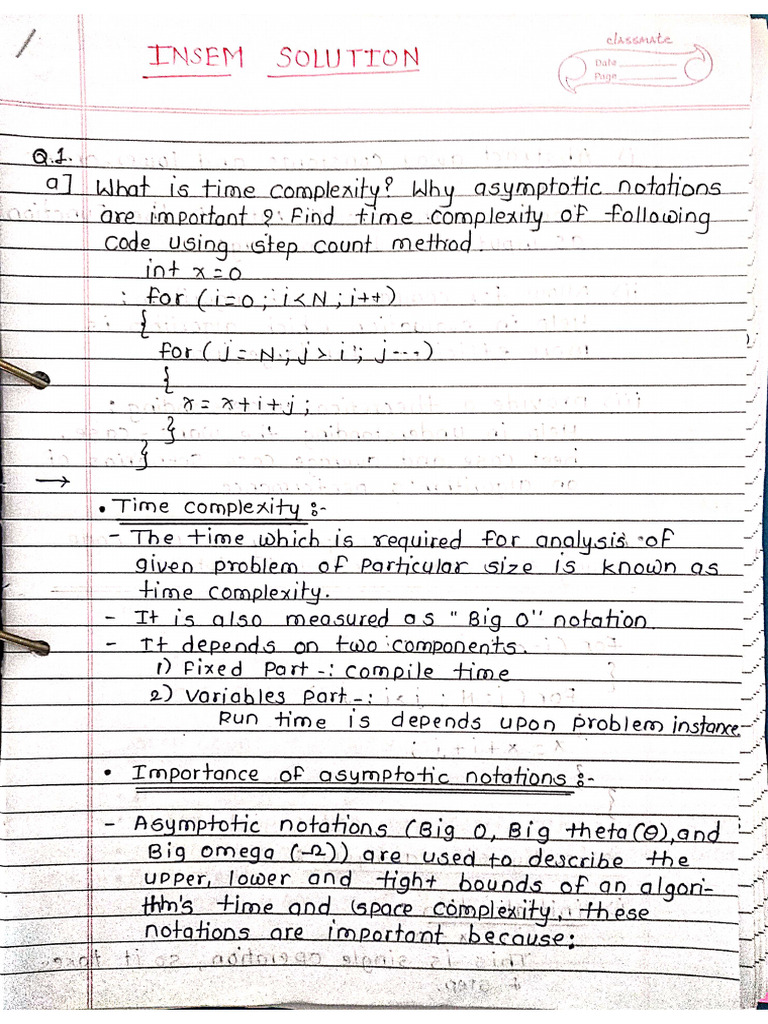 INSEM SOLUTION
classmate
Date
Page
Q.1.
a] What is time complexity? Why asymptotic notations
are important? Find time complexity of following
code using step count method.
int x=0
for (i=0; i<N; i++)
{
for (j=N; j>i; j--)
{
x=x+i+j;
}
}
→
• Time complexity :-
- The time which is required for analysis of
given problem of particular size is known as
time complexity.
- It is also measured as "Big O" notation
- It depends on two components.
1) Fixed Part -: compile time
2) Variables part -:
Run time is depends upon problem instance
• Importance of asymptotic notations :-
- Asymptotic notations (Big O, Big theta(θ), and
Big omega (Ω)) are used to describe the
upper, lower and tight bounds of an algori-
thm's time and space complexity, these
notations are important because: